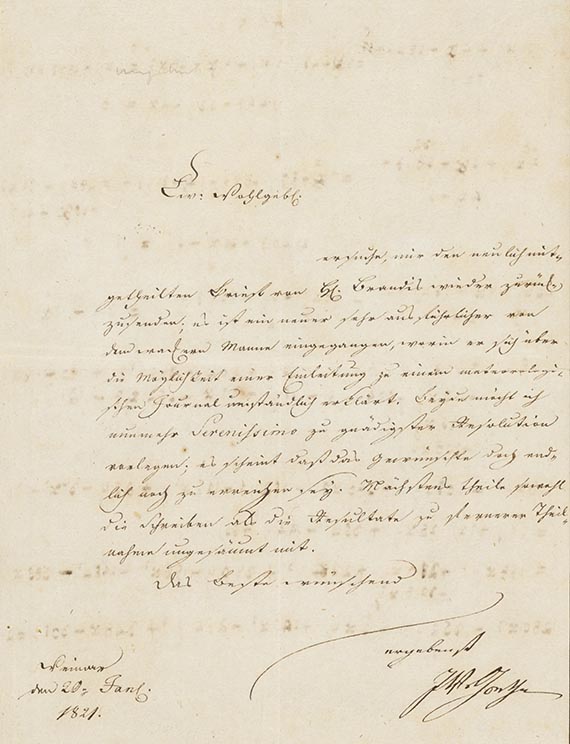 Ew: Wohlgebl.
ersuche, mir den neulich mit-
getheilten Brief von H. Brandis wieder zurück-
zusenden, es ist ein neuer sehr ausführlicher von
dem wackern Manne eingegangen, worin er sich über
die Möglichkeit einer Einleitung zu einem meteorologi-
schen Journal umständlich erklärt. Beydes möcht ich
nunmehr Serenissimo zu gnädigster Resolution
vorlegen; es scheint daß das Gewünschte doch end-
lich noch zu erreichen sey. Nächstens theile sowohl
die Schreiben als die Resultate zu fernerer Theil-
nahme ungesäumt mit.
Das Beste wünschend
ergebenst
JWvGoethe
Weimar
den 20n Janl.
1821.